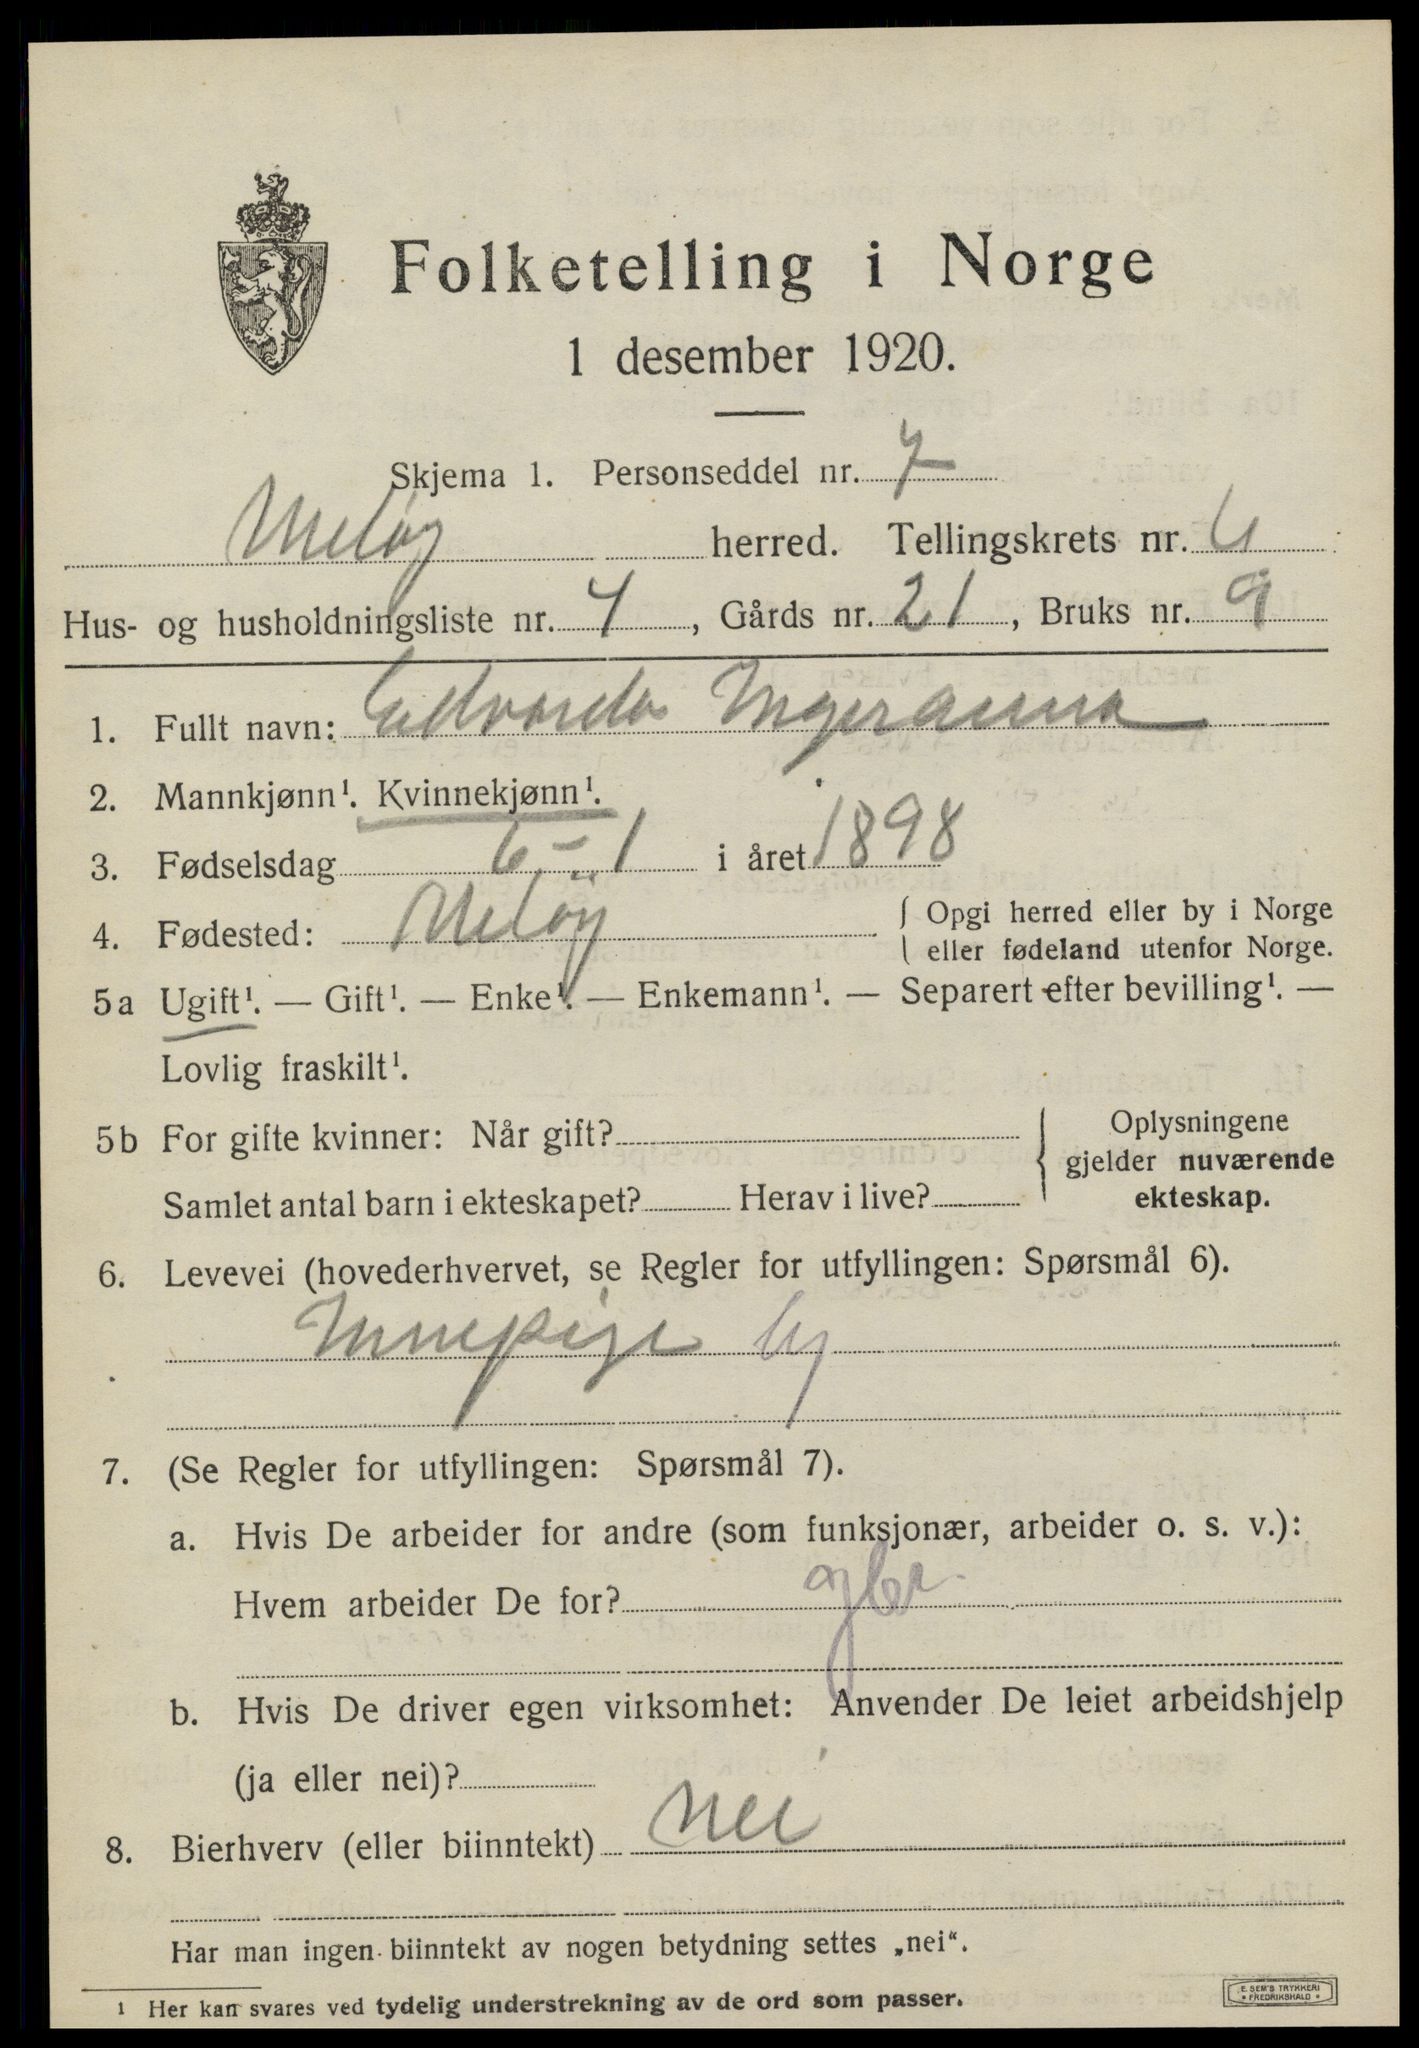 Folketelling i Norge
1 desember 1920.
Skjema 1. Personseddel nr. 7
Meløy herred. Tellingskrets nr. 6
Hus- og husholdningsliste nr. 4, Gårds nr. 21, Bruks nr. 9
1. Fullt navn: Edvarda Ingeranna
2. Mannkjønn¹. Kvinnekjønn¹.
3. Fødselsdag 6-1 i året 1898
4. Fødested: Meløy { Opgi herred eller by i Norge
eller fødeland utenfor Norge.
5a Ugift¹. — Gift¹. — Enke¹. — Enkemann¹. — Separert efter bevilling¹. —
Lovlig fraskilt¹.
5b For gifte kvinner: Når gift? { Oplysningene
gjelder nuværende
Samlet antal barn i ekteskapet? Herav i live? ekteskap.
6. Levevei (hovederhvervet, se Regler for utfyllingen: Spørsmål 6).
Innepige
7. (Se Regler for utfyllingen: Spørsmål 7).
a. Hvis De arbeider for andre (som funksjonær, arbeider o. s. v.):
Hvem arbeider De for?
b. Hvis De driver egen virksomhet: Anvender De leiet arbeidshjelp
(ja eller nei)?
8. Bierhverv (eller biinntekt) Nei
Har man ingen biinntekt av nogen betydning settes „nei“.
¹ Her kan svares ved tydelig understrekning av de ord som passer.
E. SEM'S TRYKKERI
* FREDRIKSHALD *